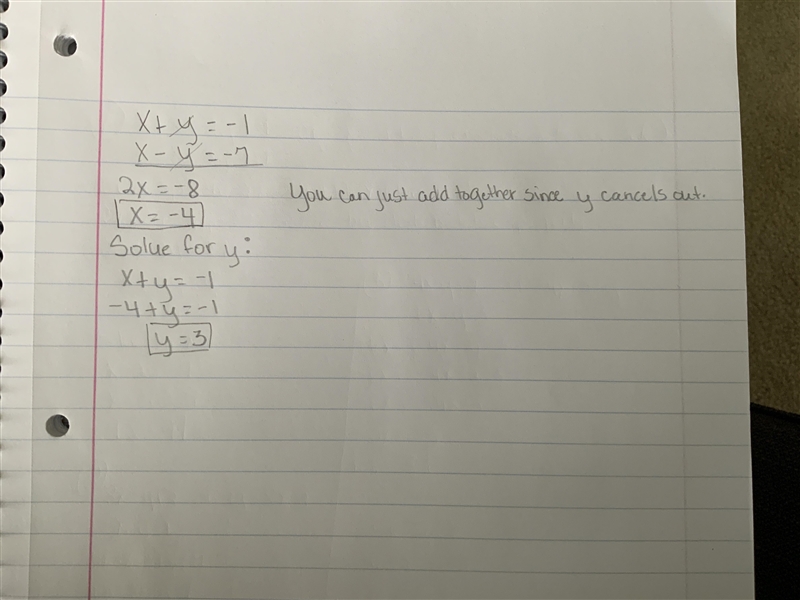 x + y = -1
x - y = -7
2x = -8 You can just add together since y cancels out.
x = -4
Solve for y:
x + y = -1
-4 + y = -1
y = 3